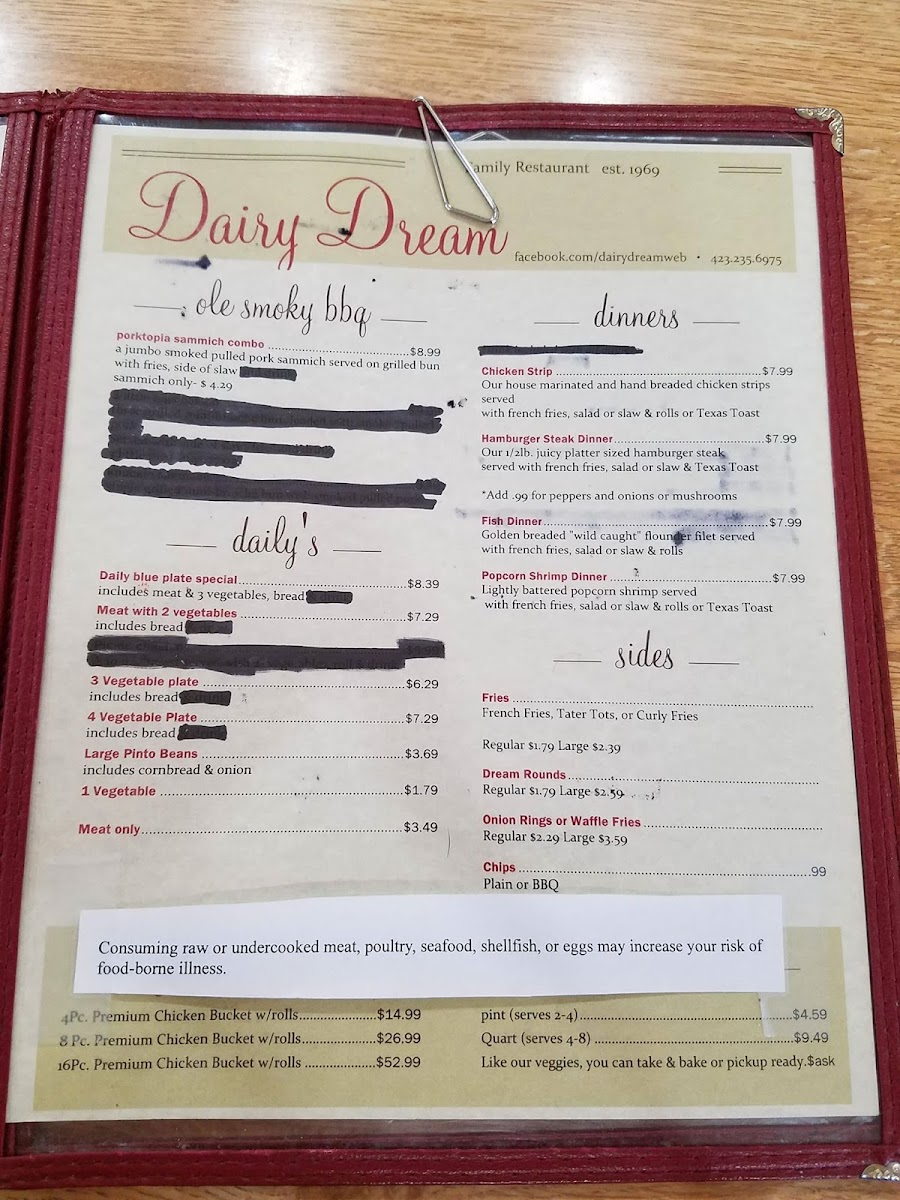 amily Restaurant est. 1969
Dairy Dream
facebook.com/dairydreamweb • 423.235.6975
ole smoky bbq
porktopia sammich combo ........ $8.99
a jumbo smoked pulled pork sammich served on grilled bun
with fries, side of slaw
sammich only- $ 4.29
daily's
Daily blue plate special ........ $8.39
includes meat & 3 vegetables, bread
Meat with 2 vegetables ........ $7.29
includes bread
3 Vegetable plate ........ $6.29
includes bread
4 Vegetable Plate ........ $7.29
includes bread
Large Pinto Beans ........ $3.69
includes cornbread & onion
1 Vegetable ........ $1.79
Meat only ........ $3.49
dinners
Chicken Strip ........ $7.99
Our house marinated and hand breaded chicken strips
served
with french fries, salad or slaw & rolls or Texas Toast
Hamburger Steak Dinner ........ $7.99
Our 1/2lb. juicy platter sized hamburger steak
served with french fries, salad or slaw & Texas Toast
*Add .99 for peppers and onions or mushrooms
Fish Dinner ........ $7.99
Golden breaded "wild caught" flounder filet served
with french fries, salad or slaw & rolls
Popcorn Shrimp Dinner ........ $7.99
Lightly battered popcorn shrimp served
with french fries, salad or slaw & rolls or Texas Toast
sides
Fries ........
French Fries, Tater Tots, or Curly Fries
Regular $1.79 Large $2.39
Dream Rounds ........
Regular $1.79 Large $2.59
Onion Rings or Waffle Fries ........
Regular $2.29 Large $3.59
Chips ........ .99
Plain or BBQ
Consuming raw or undercooked meat, poultry, seafood, shellfish, or eggs may increase your risk of
food-borne illness.
4Pc. Premium Chicken Bucket w/rolls ........ $14.99
8 Pc. Premium Chicken Bucket w/rolls ........ $26.99
16Pc. Premium Chicken Bucket w/rolls ........ $52.99
pint (serves 2-4) ........ $4.59
Quart (serves 4-8) ........ $9.49
Like our veggies, you can take & bake or pickup ready.$ask